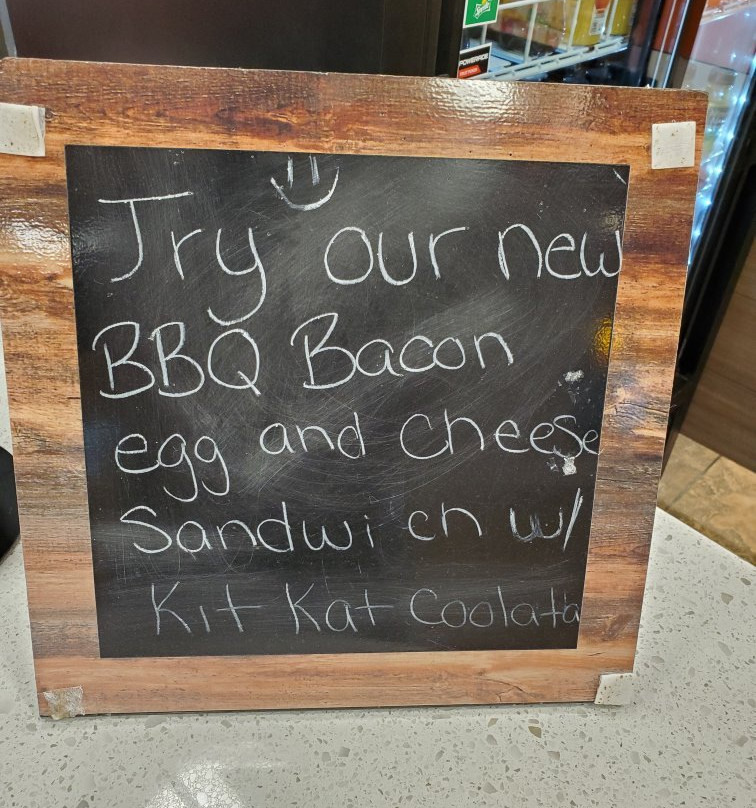 Sprite
POWERADE
Try our new
BBQ Bacon
egg and cheese
Sandwich w/
Kit Kat Coolatta